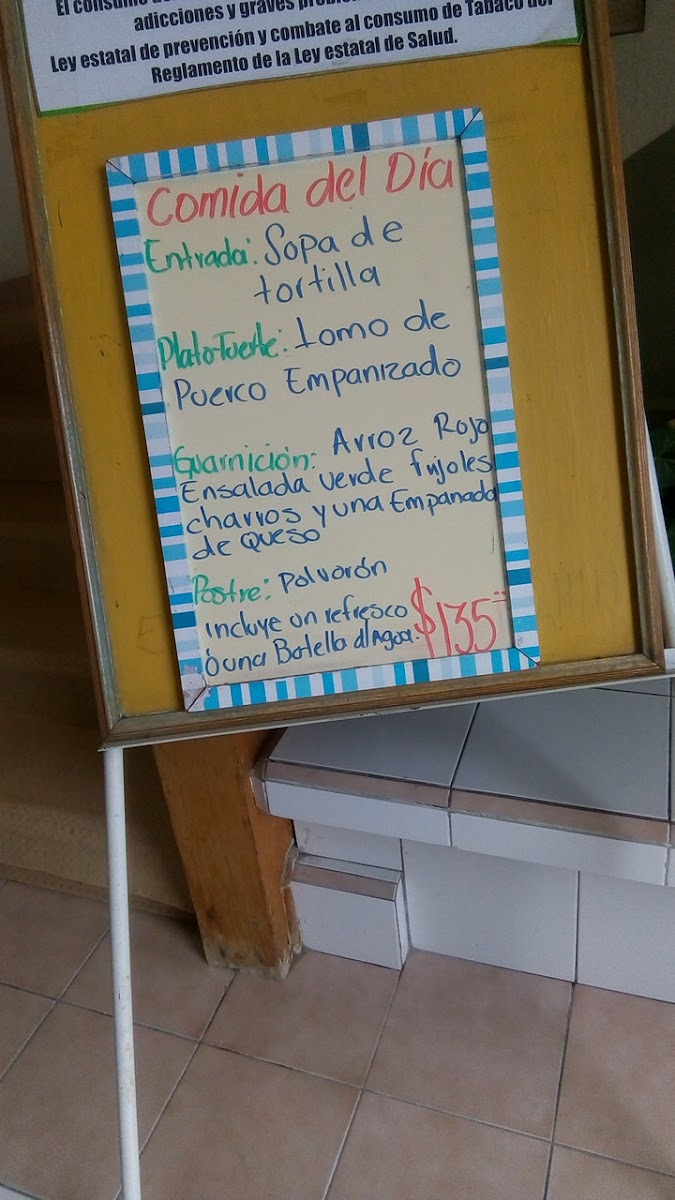 El consumo
adicciones y graves
Ley estatal de prevención y combate al consumo de Tabaco del
Reglamento de la Ley estatal de Salud.
Comida del Día
Entrada: Sopa de
tortilla
Plato Fuerte: Lomo de
Puerco Empanizado
Guarnición: Arroz Rojo
Ensalada verde frijoles
charros y una Empanada
de Queso
Postre: Polvorón
incluye un refresco
ó una Botella d/Agua. $135